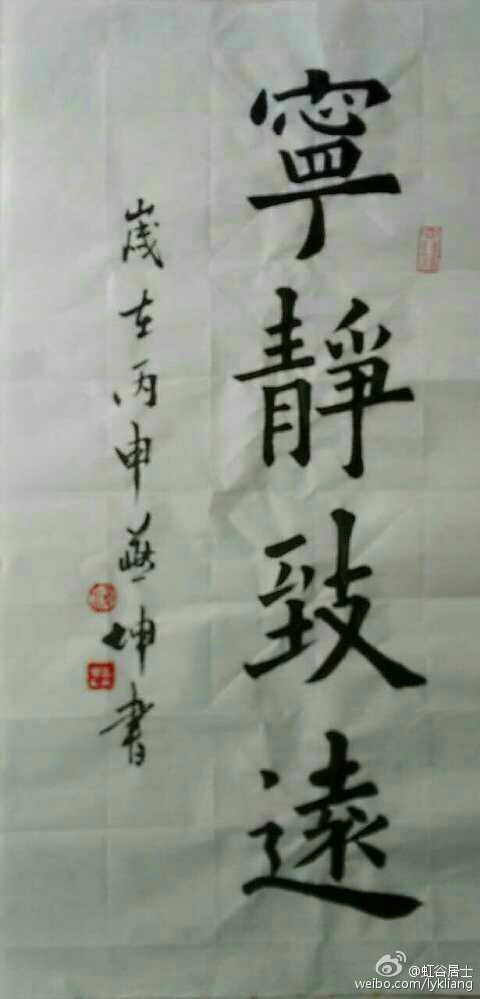 寧靜致遠
歲在丙申燕坤書
虹谷居士
weibo.com/lykliang